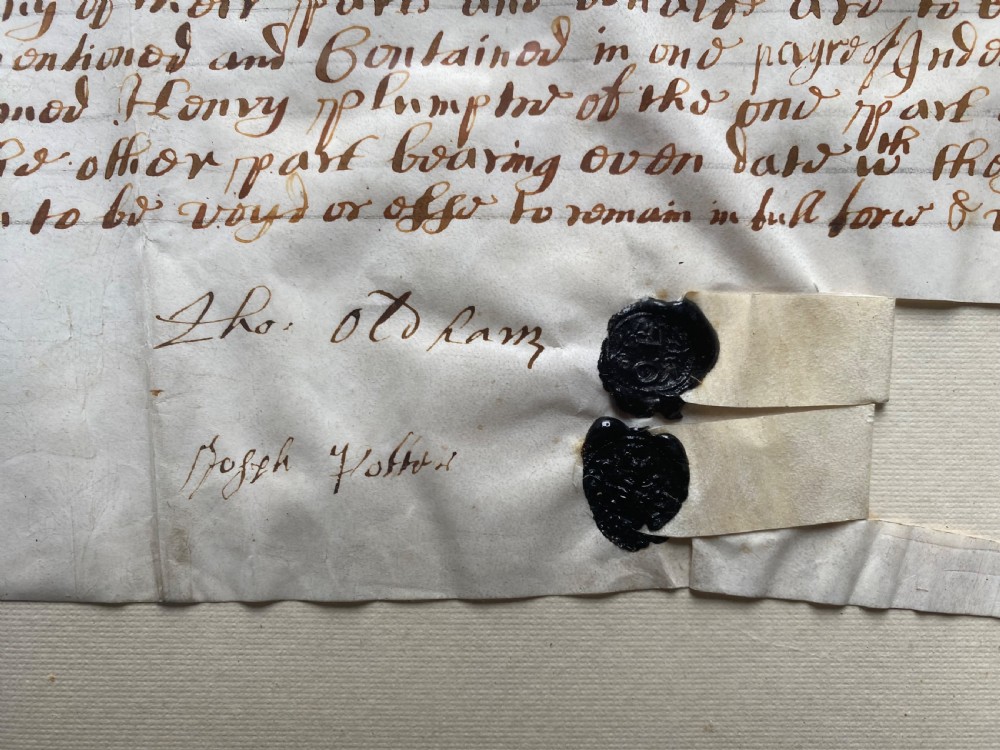 ny of their parts and behalfs are to b
entioned and Contained in one payre of Inde
med Henry Plumptre of the one part
he other part bearing even date wth the
to be voyd or else to remain in full force &
Tho: Oldham
Joseph Potter